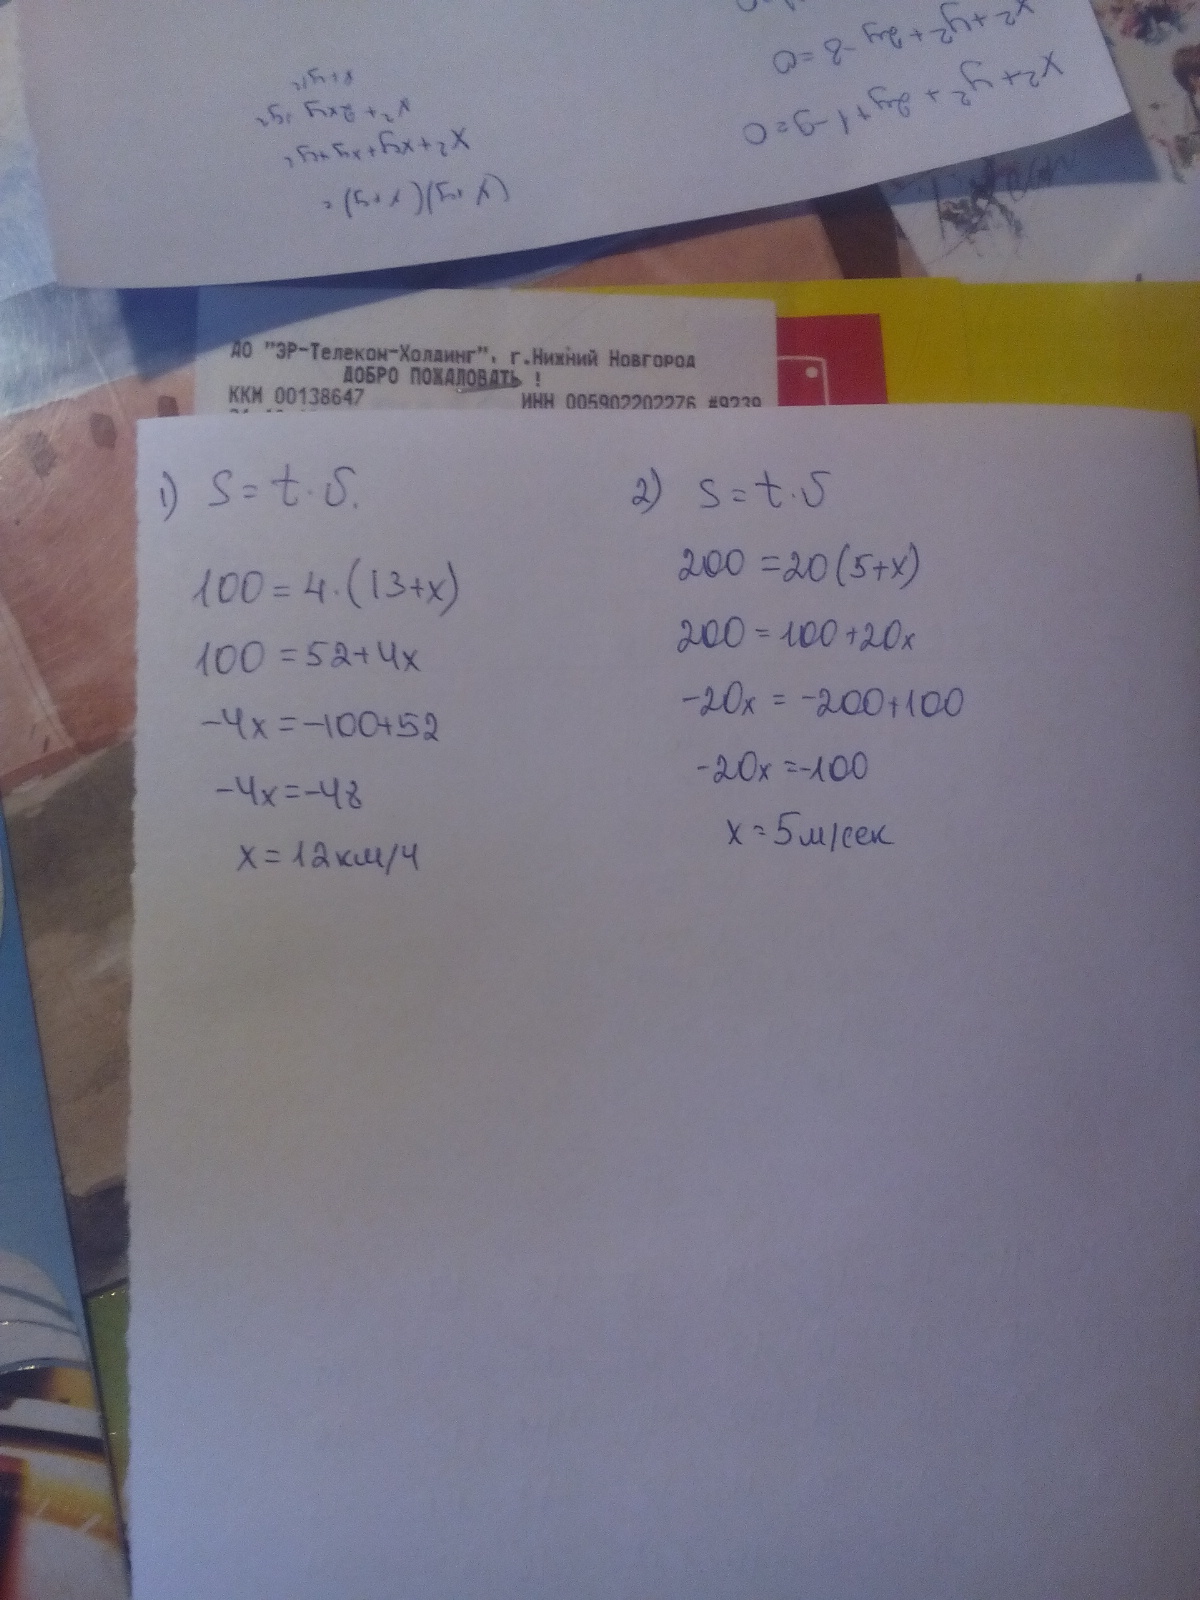 x²+y²+2y-8=0
x²+y²+2y+1-9=0
(x+y)(x+y)=
x²+xy+xy+y²
x²+2xy+y²
АО "ЭР-Телеком-Холдинг", г.Нижний Новгород
ДОБРО ПОЖАЛОВАТЬ !
ККМ 00138647 ИНН 005902202276 #9239
1) S=t·υ.
100=4·(13+x)
100=52+4x
-4x=-100+52
-4x=-48
x=12км/ч
2) S=t·υ
200=20(5+x)
200=100+20x
-20x=-200+100
-20x=-100
x=5м/сек